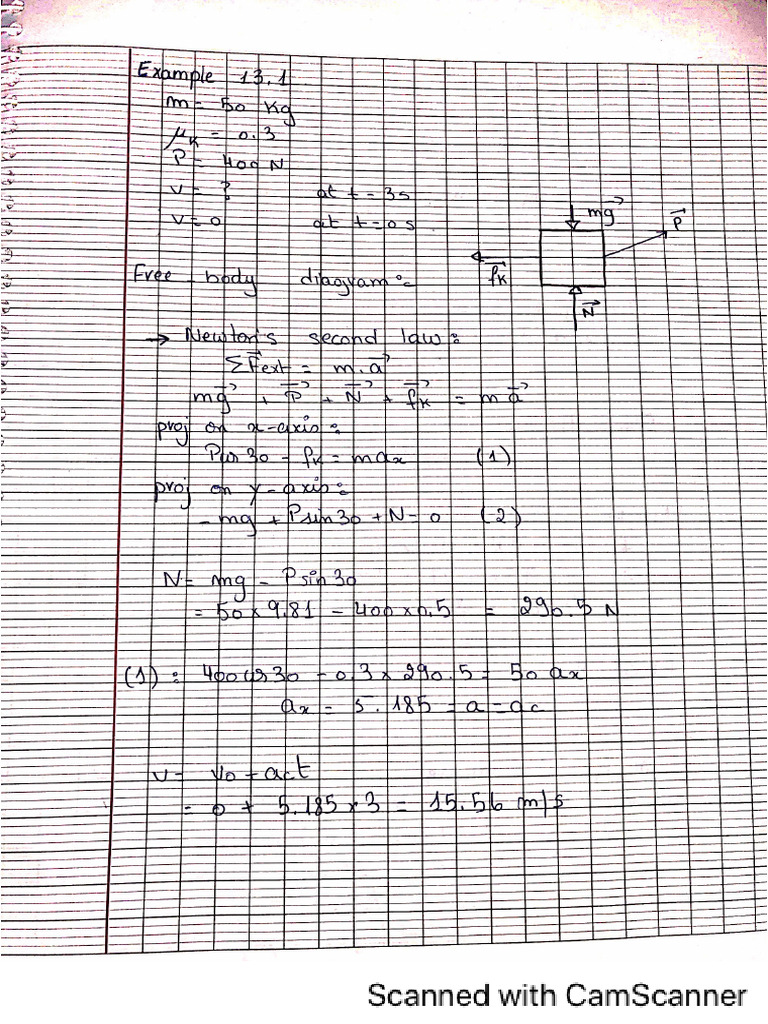 Example 13.1
m = 50 Kg
μk = 0.3
P = 400 N
v = ? at t = 3s
v = 0 at t = 0 s
mg⃗
P⃗
f⃗k
N⃗
Free body diagram:
→ Newton's second law:
ΣF⃗ext = m.a⃗
mg⃗ + P⃗ + N⃗ + f⃗k = m a⃗
proj on x-axis:
30 - fk = max (1)
proj on y-axis:
- mg + Psin30 + N = 0 (2)
N = mg - Psin30
= 50 x 9.81 - 400 x 0.5 = 290.5 N
(1): 400 cos30 - 0.3 x 290.5 = 50 ax
ax = 5.185 = a = ac
v = v0 + act
= 0 + 5.185 x 3 = 15.56 m/s
Scanned with CamScanner